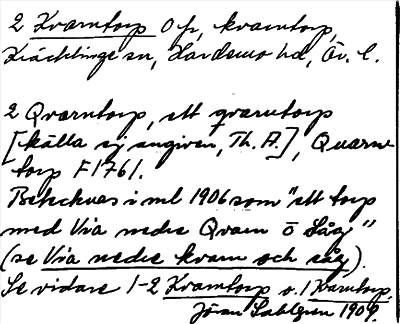 2 Kvarntorp O p, kvarntorp,
Kräcklinge sn, Hardemo hd, Ör. l.
2 Qvarntorp, ett qvarntorp
[källa ej angiven, Th. A.], Quarne
torp F1761.
Betecknas i ml 1906 som "ett torp
med Via nedre Qvarn o Såg"
(se Via nedre kvarn och såg).
Se vidare 1-2 Kvarntorp o. 1 Kvarntorp.
Jöran Sahlgren 1909.